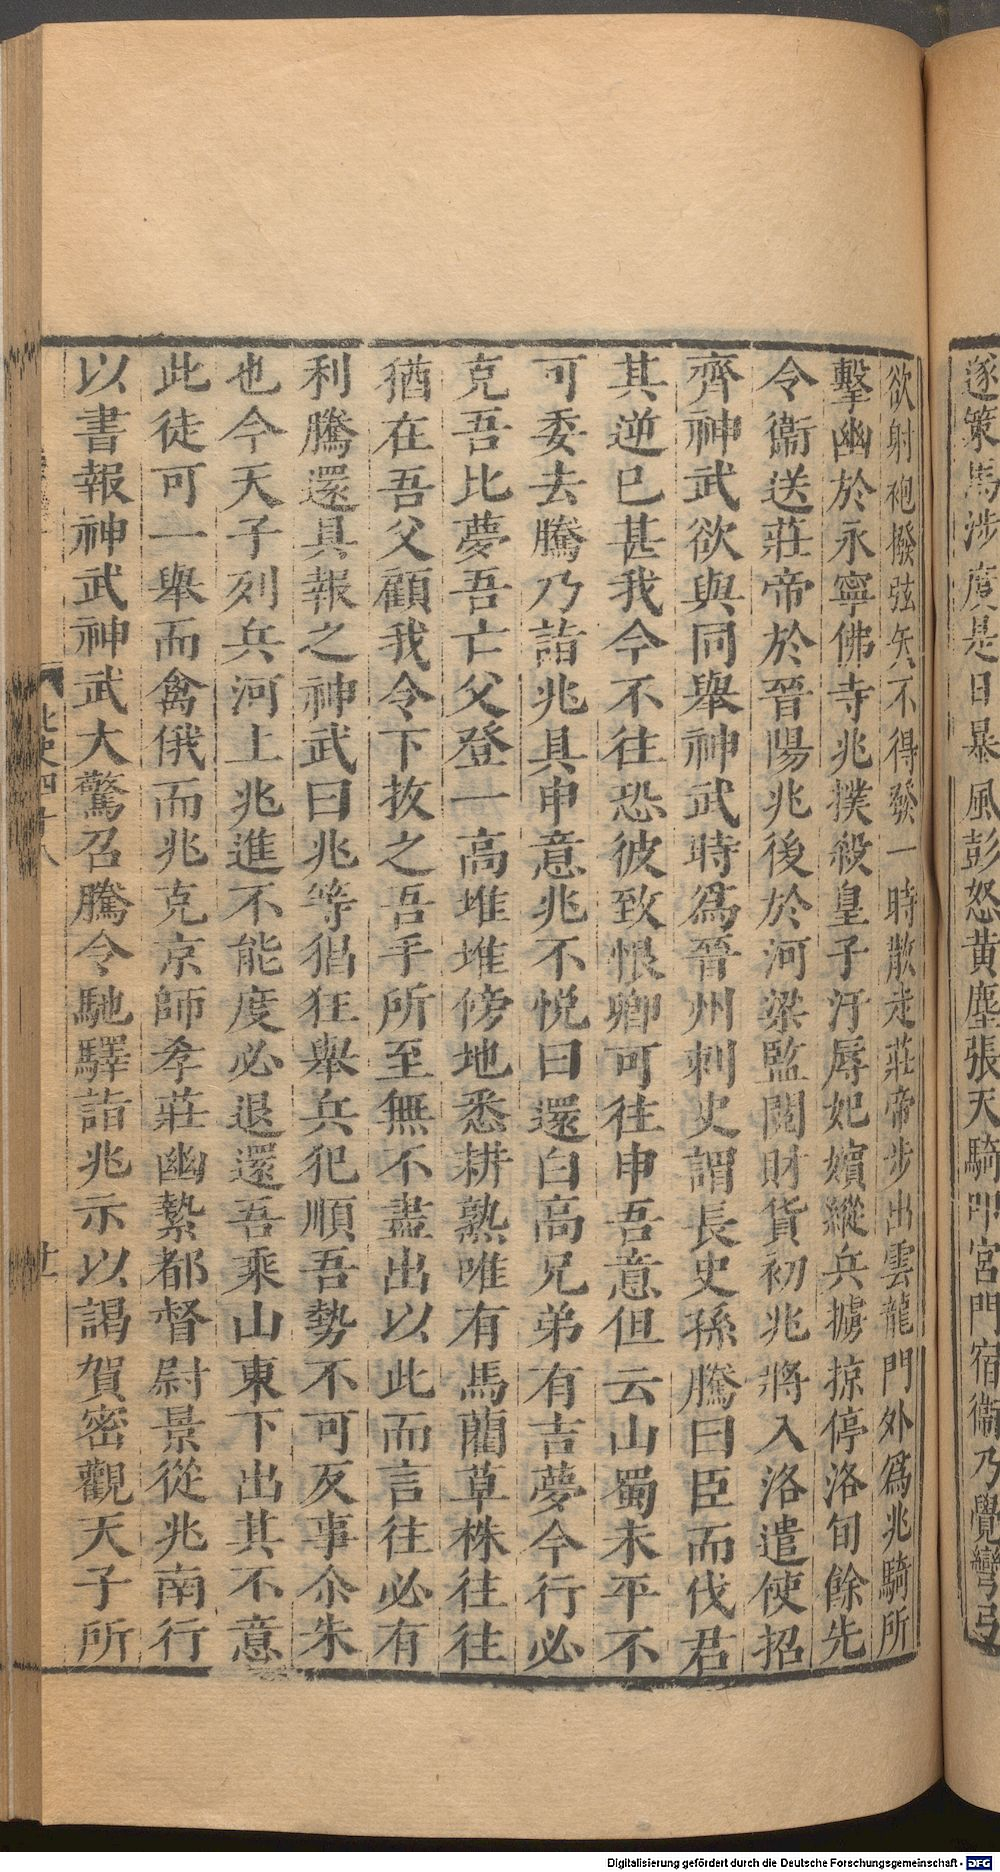 遂策馬涉度是日暴風彭怒黄塵張天騎叩宮門宿衞乃覺彎弓
欲射袍撥弦矢不得發一時散走莊帝步出雲龍門外爲兆騎所
繫幽於永寧佛寺兆撲殺皇子汙辱妃嬪縱兵擄掠停洛旬餘先
令衞送莊帝於晉陽兆後於河梁監閱財貨初兆將入洛遣使招
齊神武欲與同舉神武時爲晉州刺史謂長史孫騰曰臣而伐君
其逆已甚我今不往恐彼致恨卿可往申吾意但云山蜀未平不
可委去騰乃詣兆具申意兆不悅曰還白高兄弟有吉夢今行必
克吾比夢吾亡父登一高堆堆傍地悉耕熟唯有馬藺草株往往
猶在吾父顧我令下拔之吾手所至無不盡出以此而言往必有
利騰還具報之神武曰兆等猖狂舉兵犯順吾勢不可反事尒朱
也今天子列兵河上兆進不能度必退還吾乘山東下出其不意
此徒可一舉而禽俄而兆克京師孝莊幽縶都督尉景從兆南行
以書報神武神武大驚召騰令馳驛詣兆示以謁賀密觀天子所
北史四十八
廿一
Digitalisierung gefördert durch die Deutsche Forschungsgemeinschaft - DFG